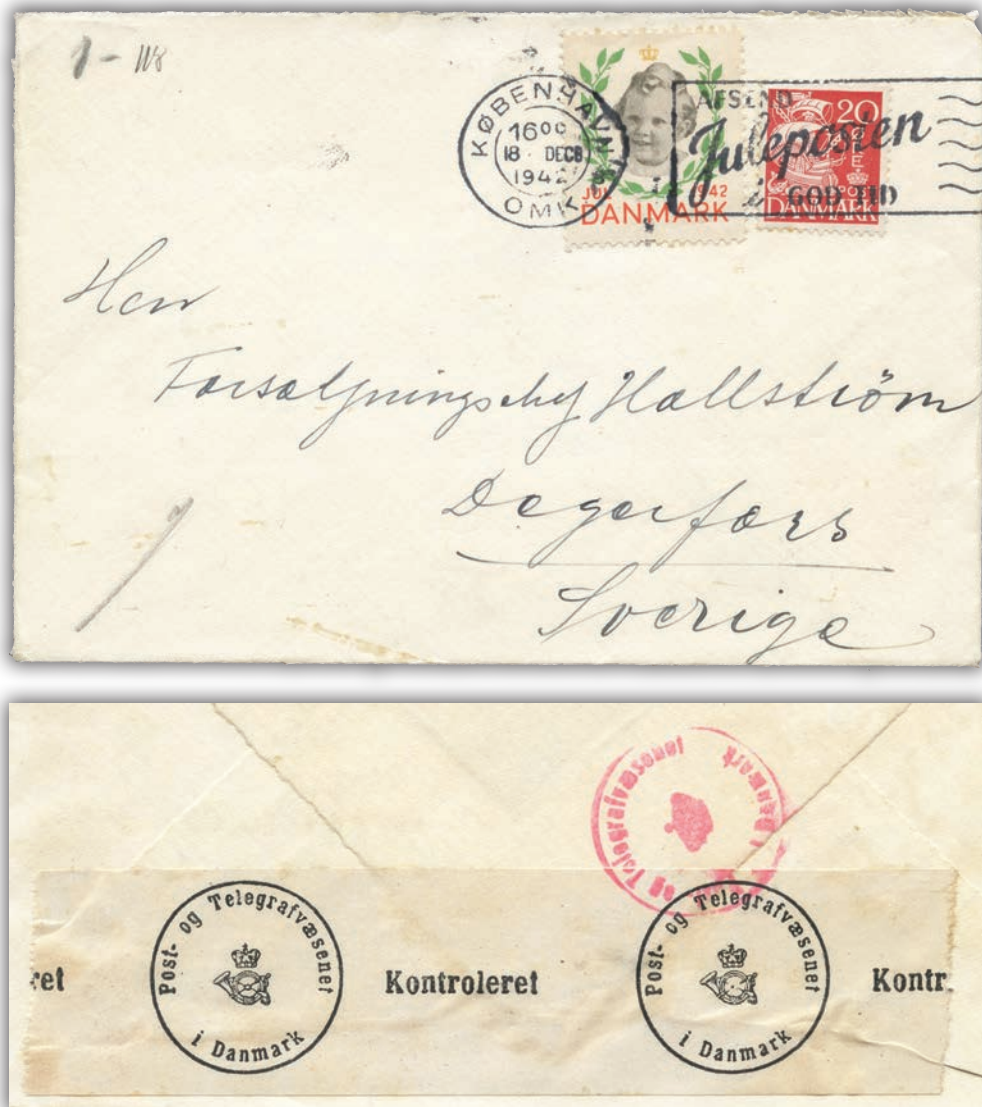 1 - 118
KØBENHAVN
16 00
18 · DECB
1942
OMK
JUL 1942
DANMARK
20
ØRE
POST
DANMARK
AFSEND
Juleposten
i GOD TID
Herr
Försäljningschef Hallström
Degerfors
Sverige
og Telegrafvæsenet
i Danmark
ret
Post- og Telegrafvæsenet
i Danmark
Kontroleret
Post- og Telegrafvæsenet
i Danmark
Kontr